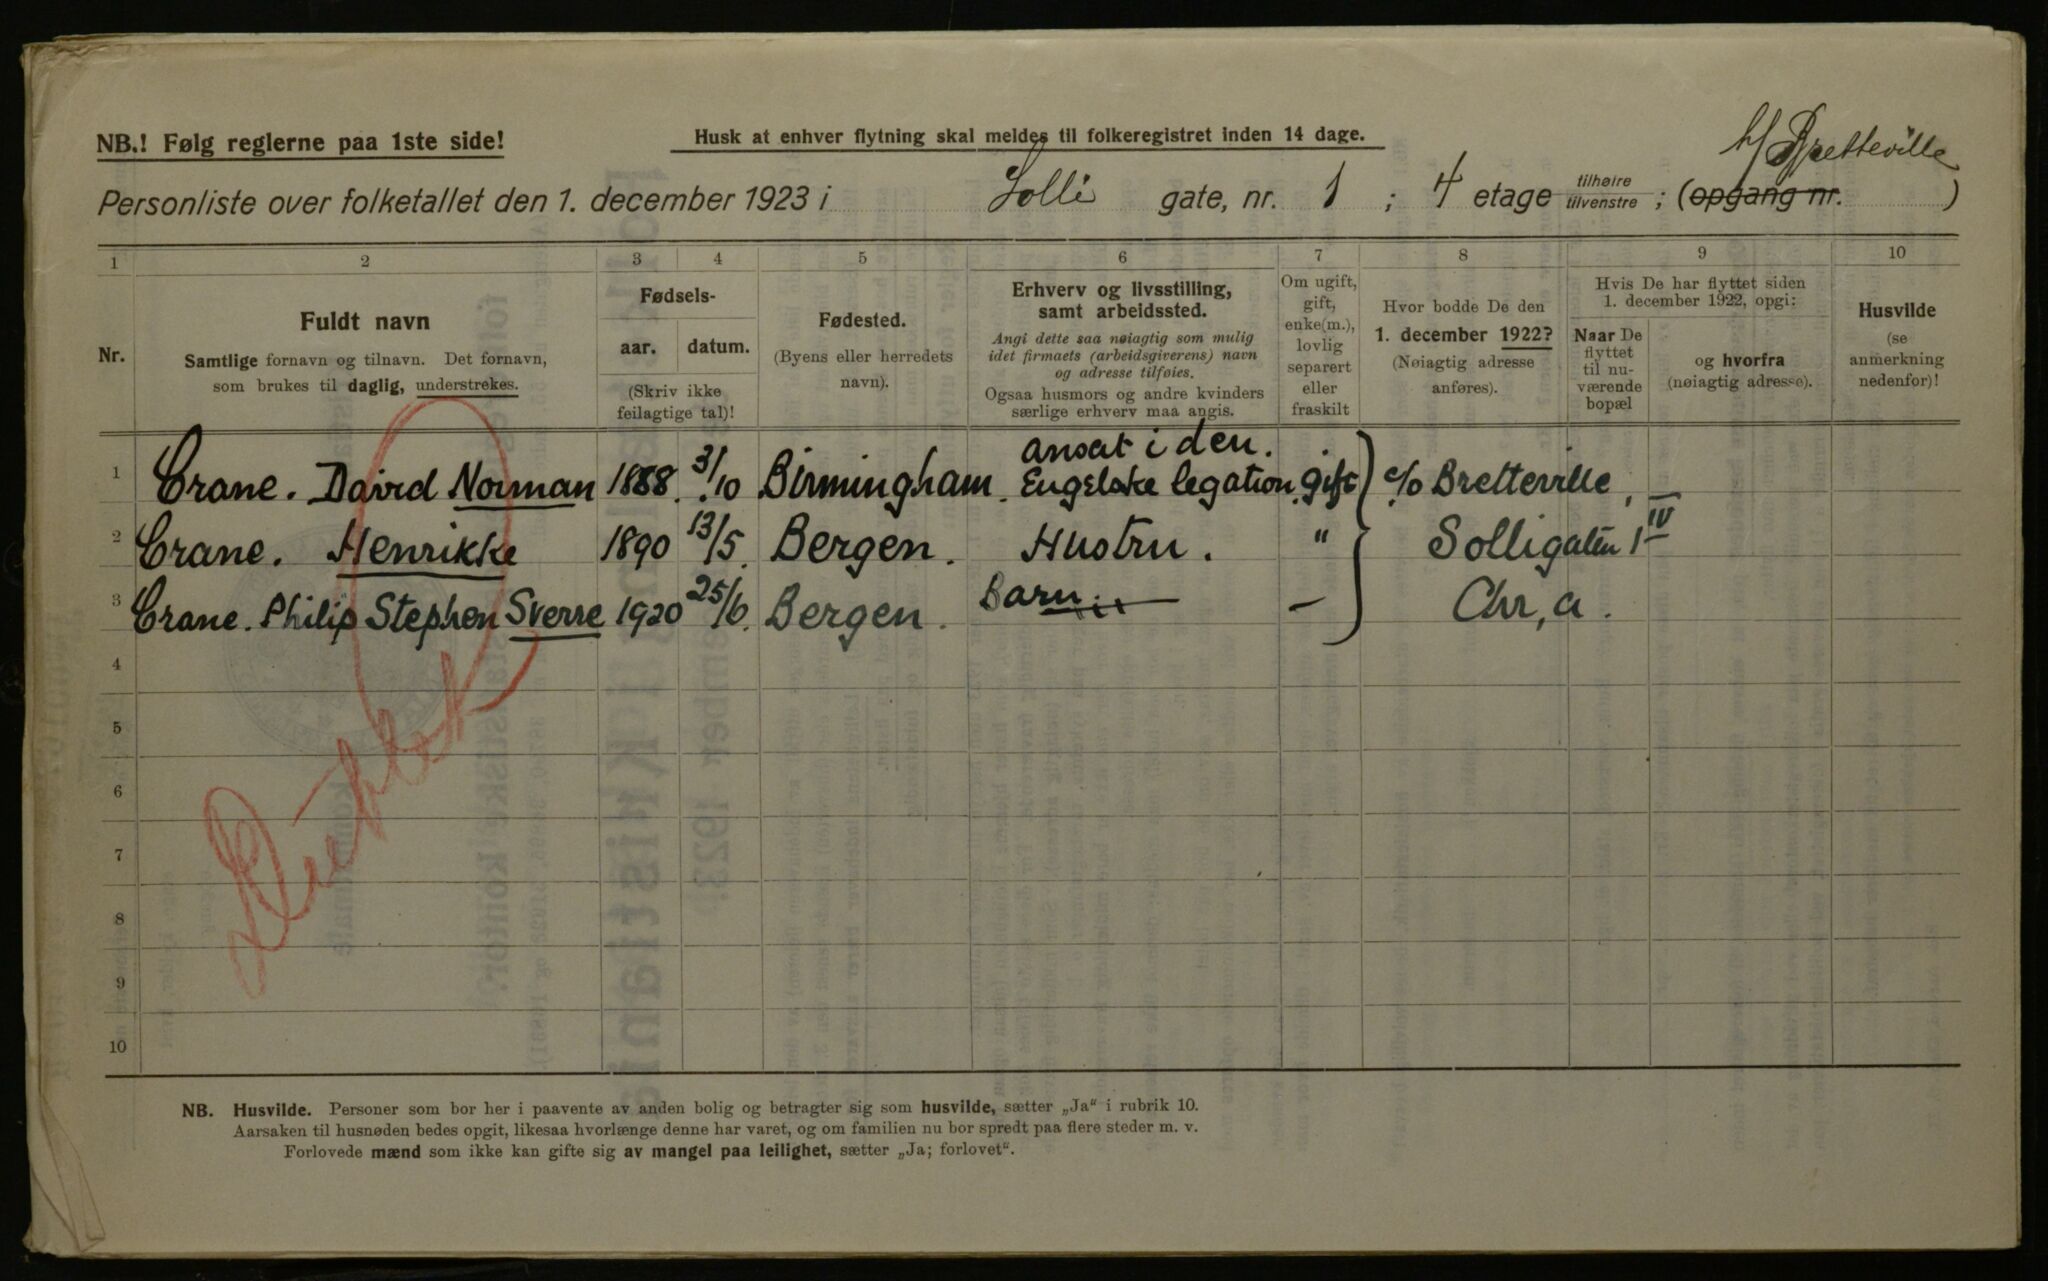 h/ Bretteville
NB.! Følg reglerne paa 1ste side!
Husk at enhver flytning skal meldes til folkeregistret inden 14 dage.
Personliste over folketallet den 1. december 1923 i Solli gate, nr. 1 ; 4 etage tilhøire tilvenstre ; (opgang nr. )
1 2 3 4 5 6 7 8 9 10
Nr.
Fuldt navn
Samtlige fornavn og tilnavn. Det fornavn,
som brukes til daglig, understrekes.
Fødsels-
aar. datum.
(Skriv ikke
feilagtige tal)!
Fødested.
(Byens eller herredets
navn).
Erhverv og livsstilling,
samt arbeidssted.
Angi dette saa nøiagtig som mulig
idet firmaets (arbeidsgiverens) navn
og adresse tilføies.
Ogsaa husmors og andre kvinders
særlige erhverv maa angis.
Om ugift,
gift,
enke(m.),
lovlig
separert
eller
fraskilt
Hvor bodde De den
1. december 1922?
(Nøiagtig adresse
anføres).
Hvis De har flyttet siden
1. december 1922, opgi:
Naar De
flyttet
til nu-
værende
bopæl
og hvorfra
(nøiagtig adresse).
Husvilde
(se
anmerkning
nedenfor)!
1 Crane. David Norman 1888. 3/10 Birmingham. ansat i den. Engelske legation. gift c/o Bretteville,
2 Crane. Henrikke 1890 13/5. Bergen. Hustru. " Solligaten 1 IV
3 Crane. Philip Stephen Sverre 1920 25/6. Bergen. Barn — Chr,a.
4
5
6
7
8
9
10
NB. Husvilde. Personer som bor her i paavente av anden bolig og betragter sig som husvilde, sætter „Ja“ i rubrik 10.
Aarsaken til husnøden bedes opgit, likesaa hvorlænge denne har varet, og om familien nu bor spredt paa flere steder m. v.
Forlovede mænd som ikke kan gifte sig av mangel paa leilighet, sætter „Ja; forlovet“.